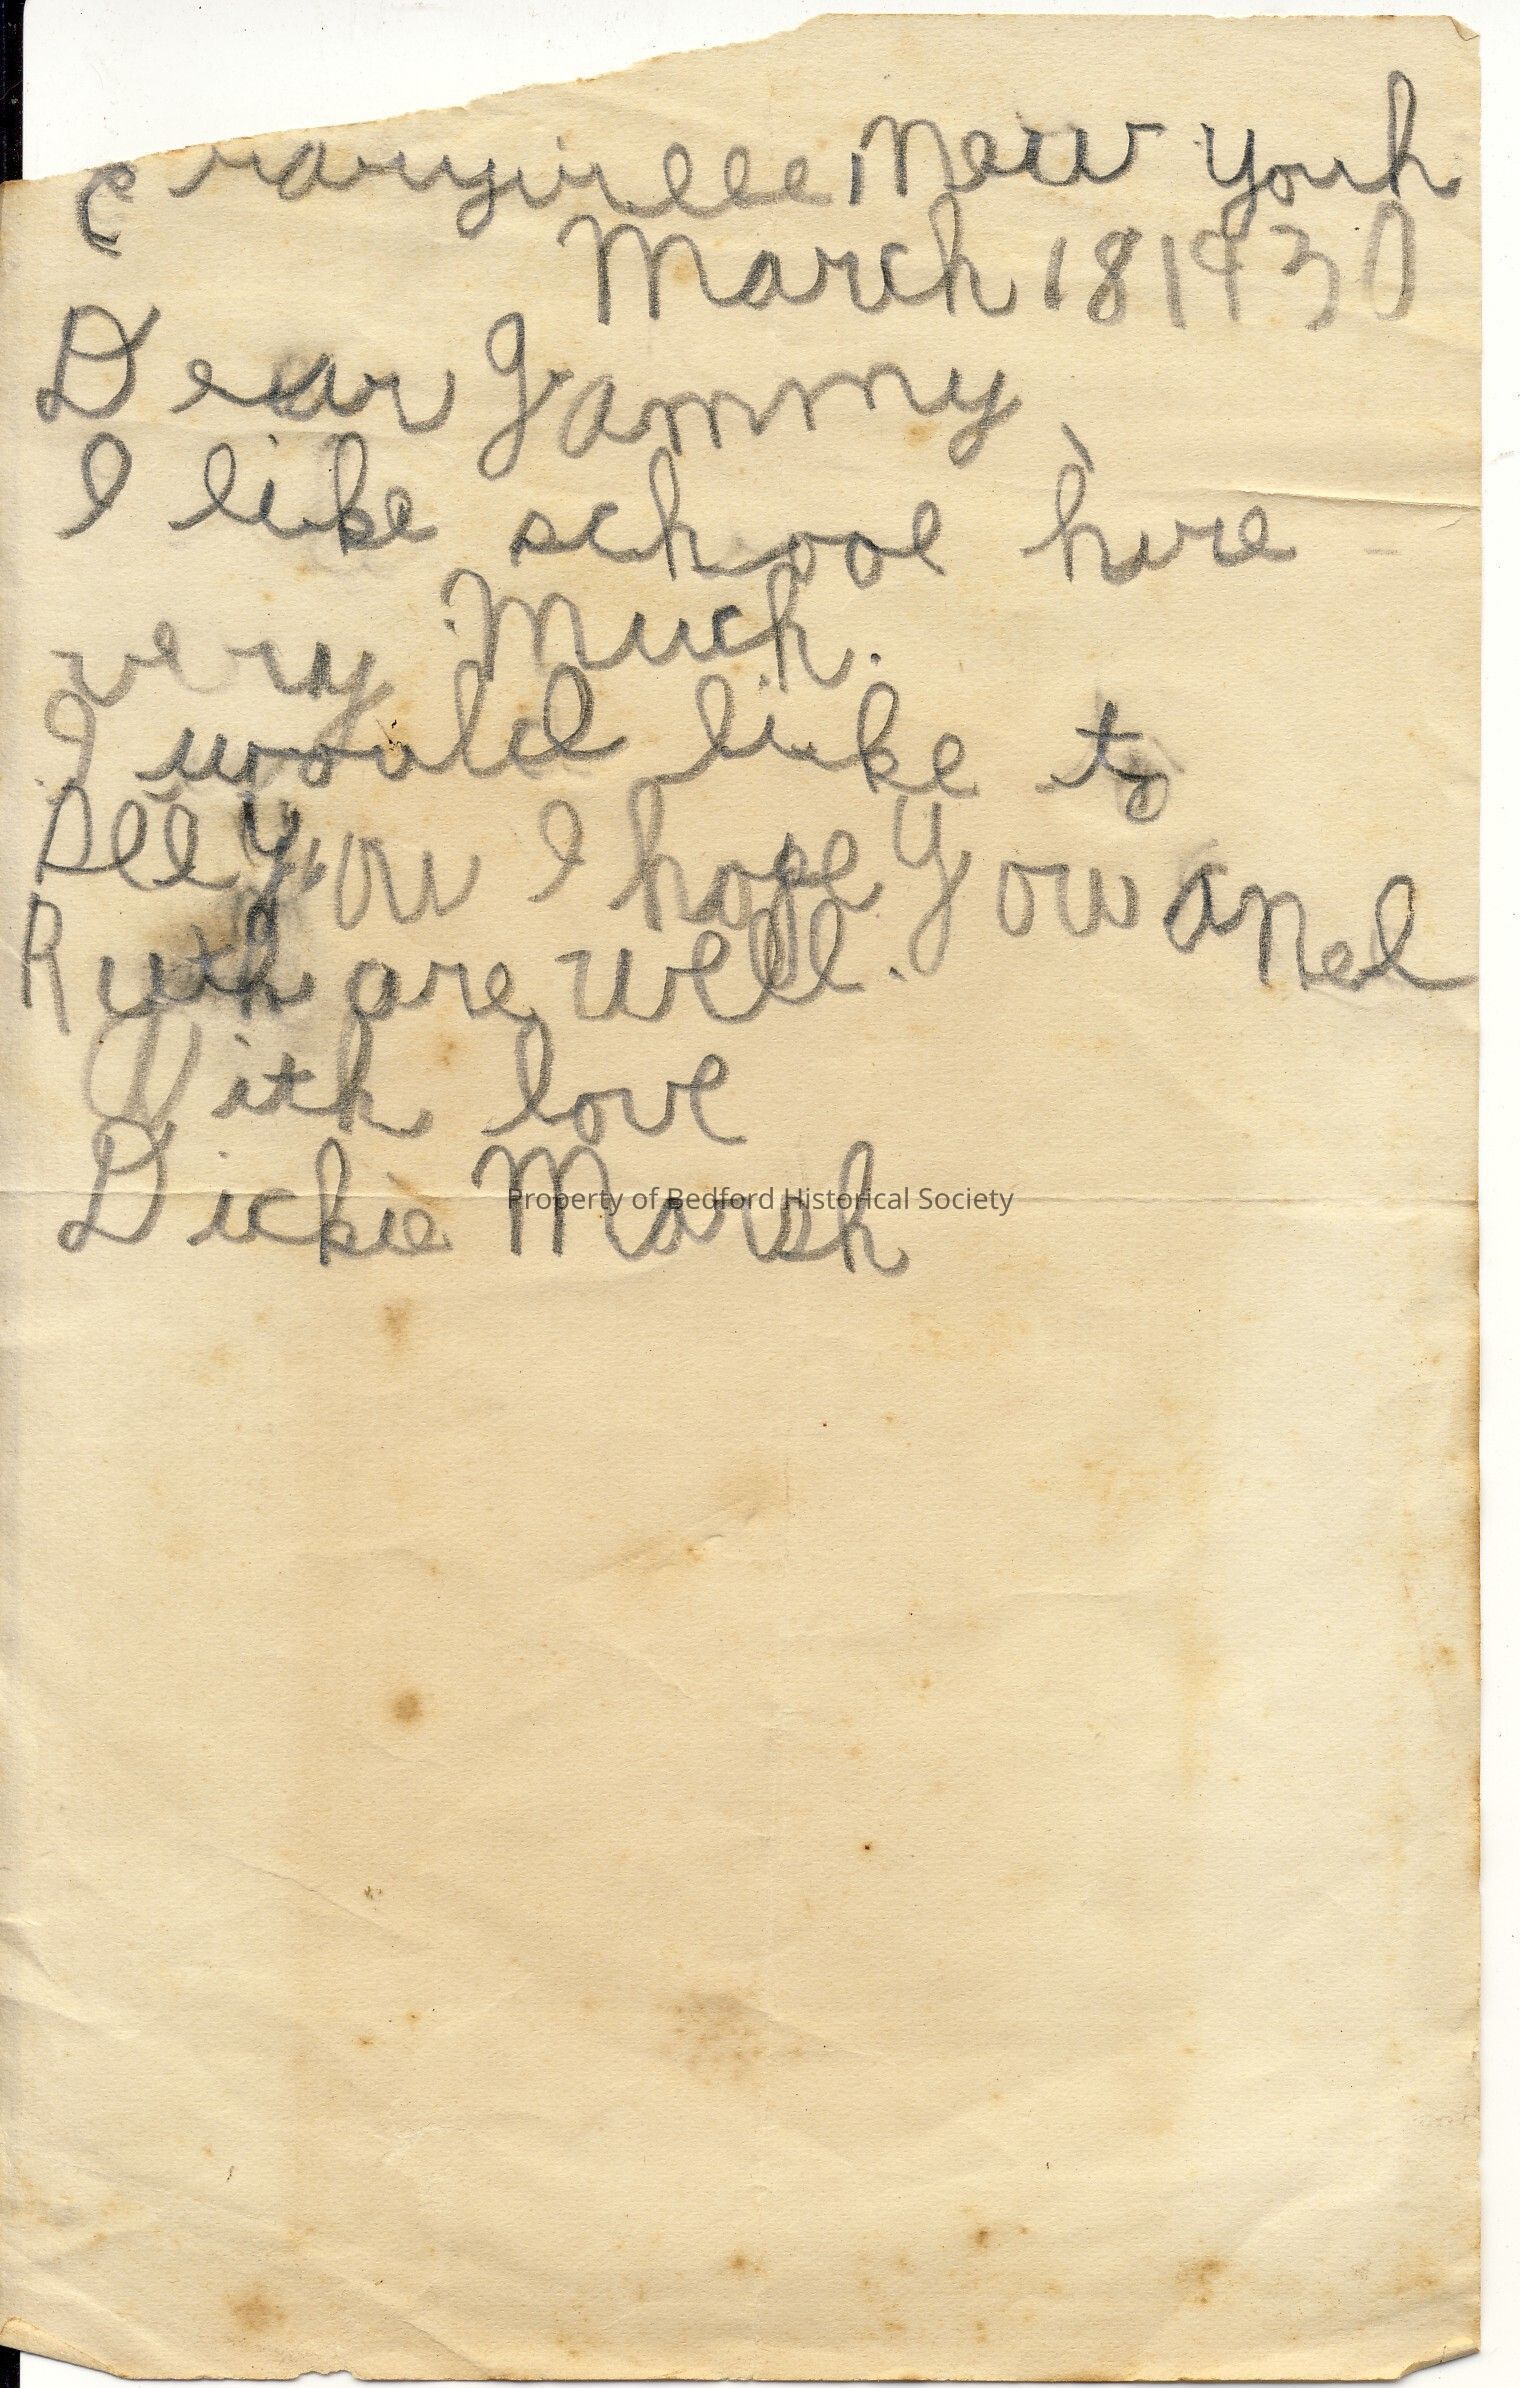 Craryville, New York
March 18 1930
Dear Gammy,
I like school here
very Much.
I would like to
See you I hope You and
Ruth are well.
With love
Dickie Marsh
Property of Bedford Historical Society